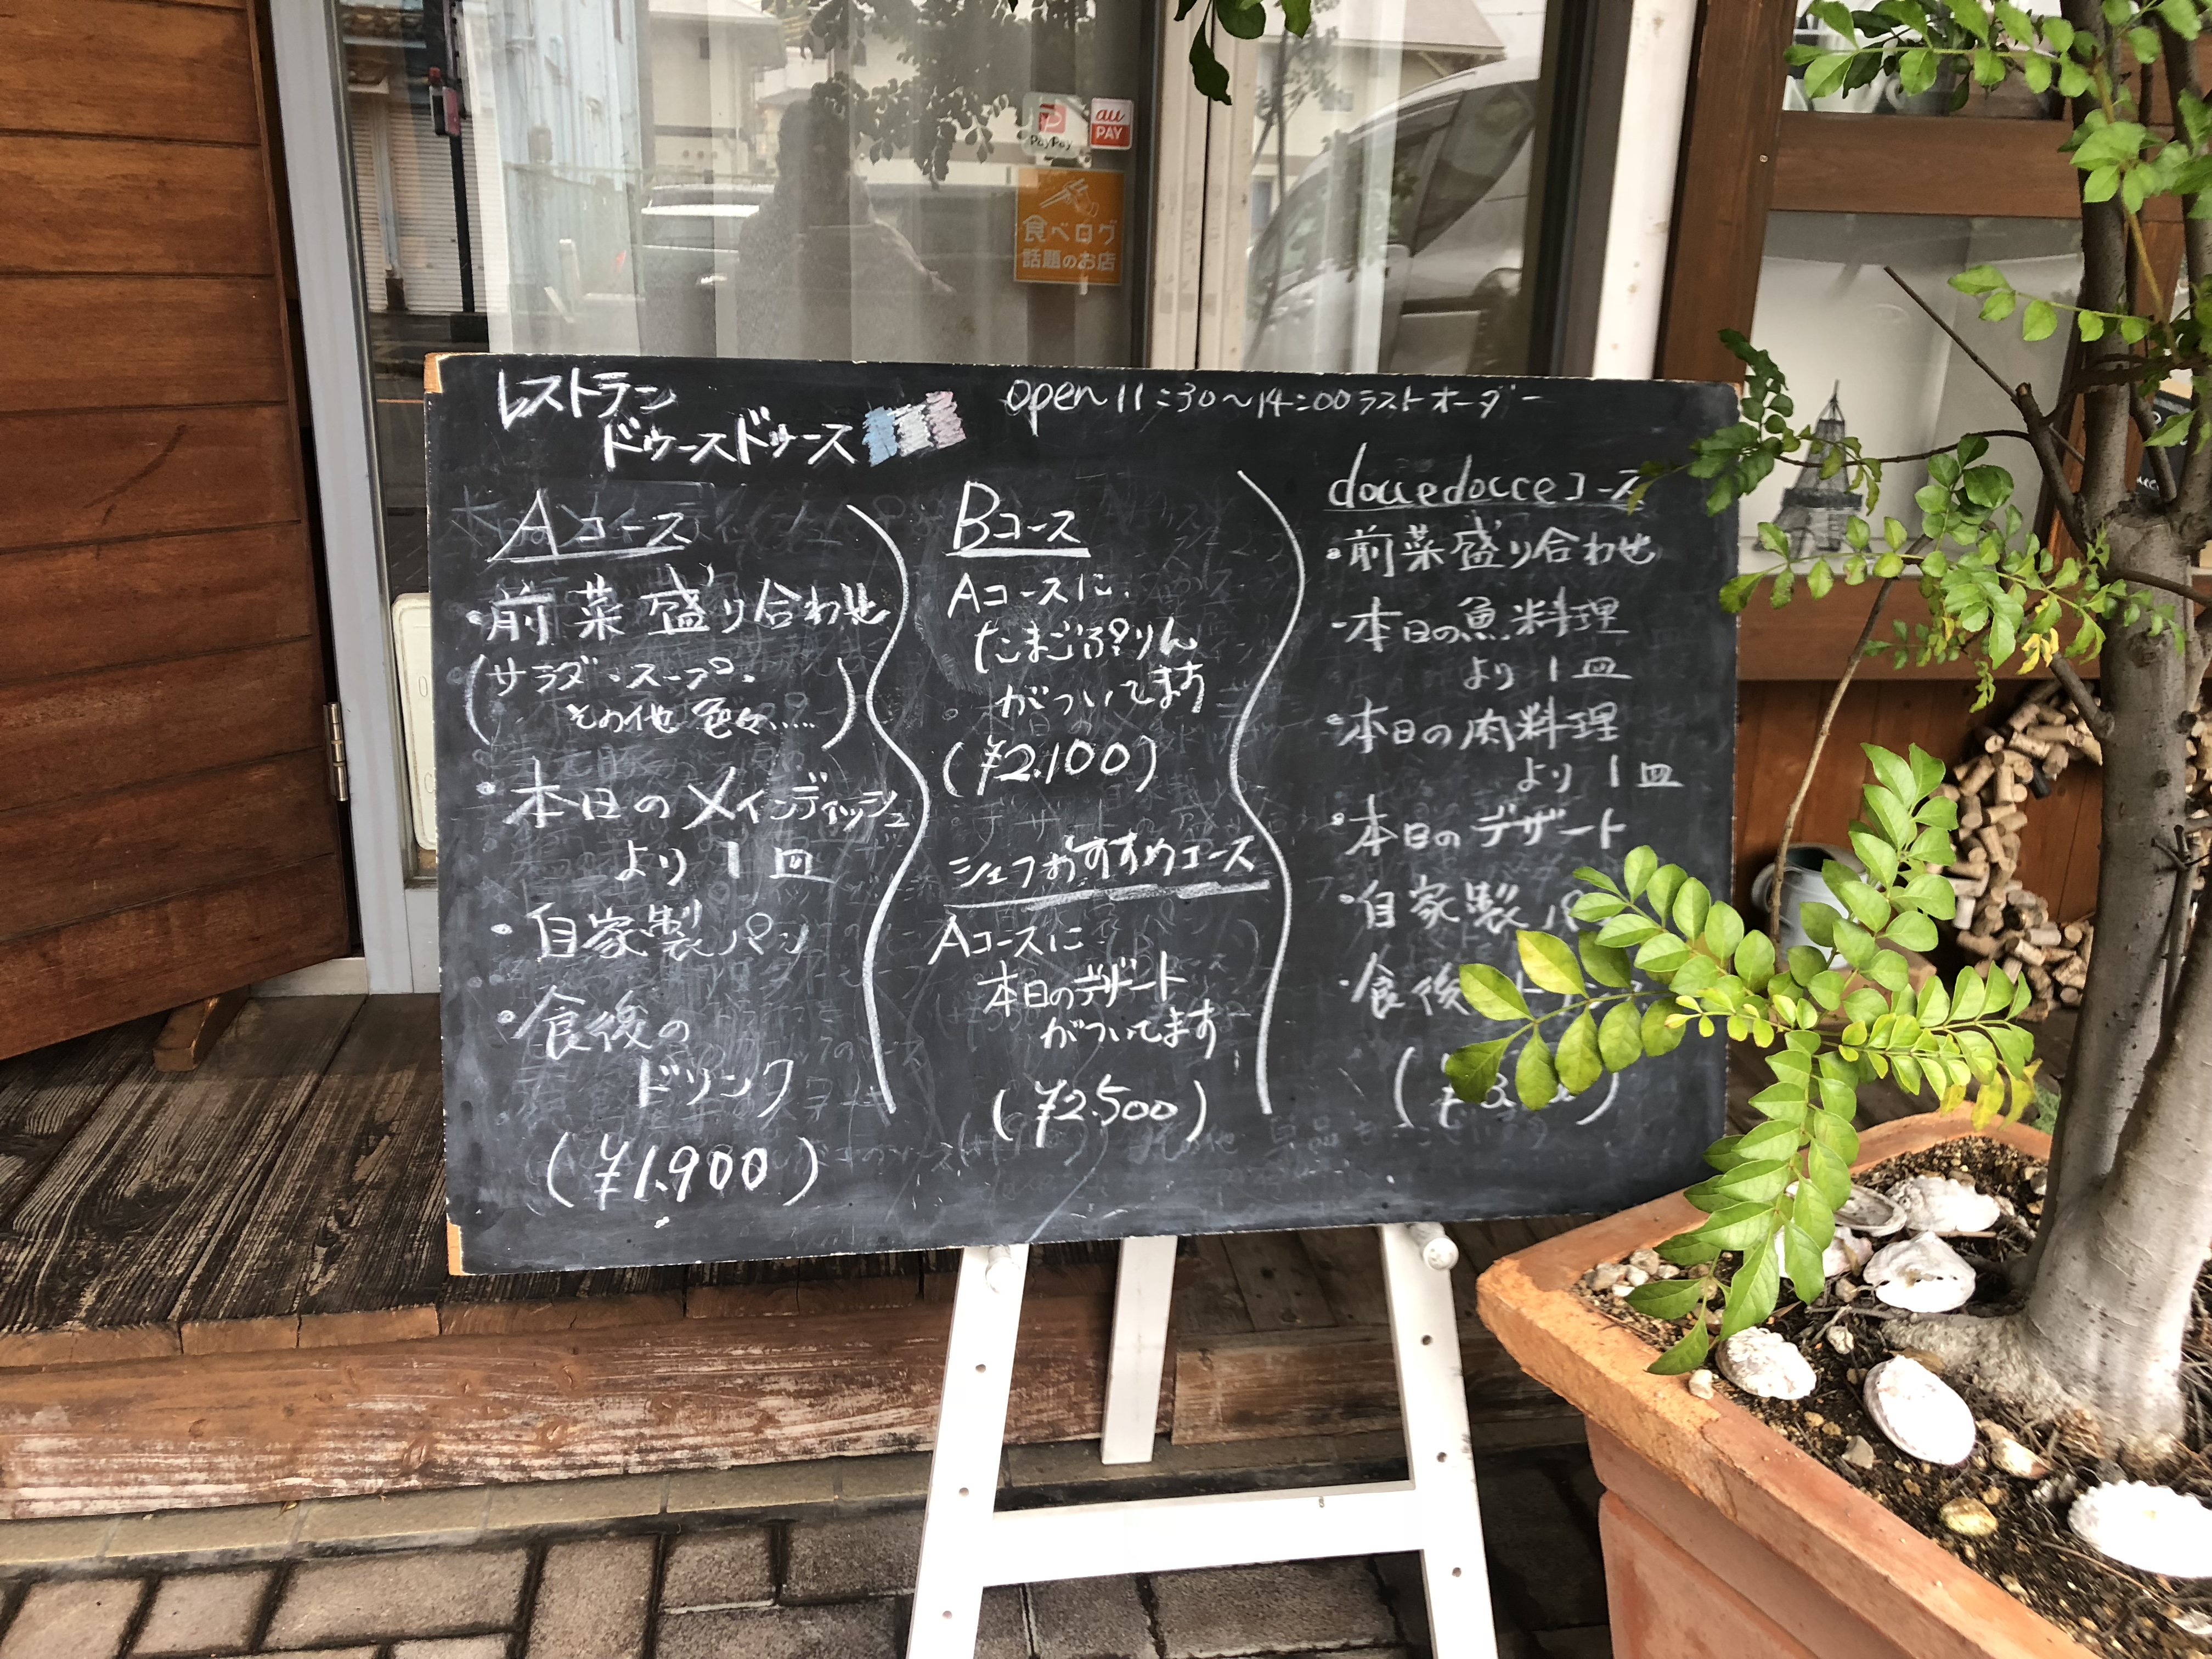 PayPay
au
PAY
食べログ
話題のお店
レストラン
ドゥースドゥース
open 11:30〜14:00ラストオーダー
Aコース
・前菜盛り合わせ
(サラダ・スープ・
その他 色々……)
・本日のメインディッシュ
より 1皿
・自家製パン
・食後の
ドリンク
(¥1.900)
Bコース
Aコースに、
たまごぷりん
がついてます
(¥2.100)
シェフおすすめコース
Aコースに
本日のデザート
がついてます
(¥2.500)
doucedouceコース
・前菜盛り合わせ
・本日の魚料理
より 1皿
・本日の肉料理
より 1皿
・本日のデザート
・自家製
・食後